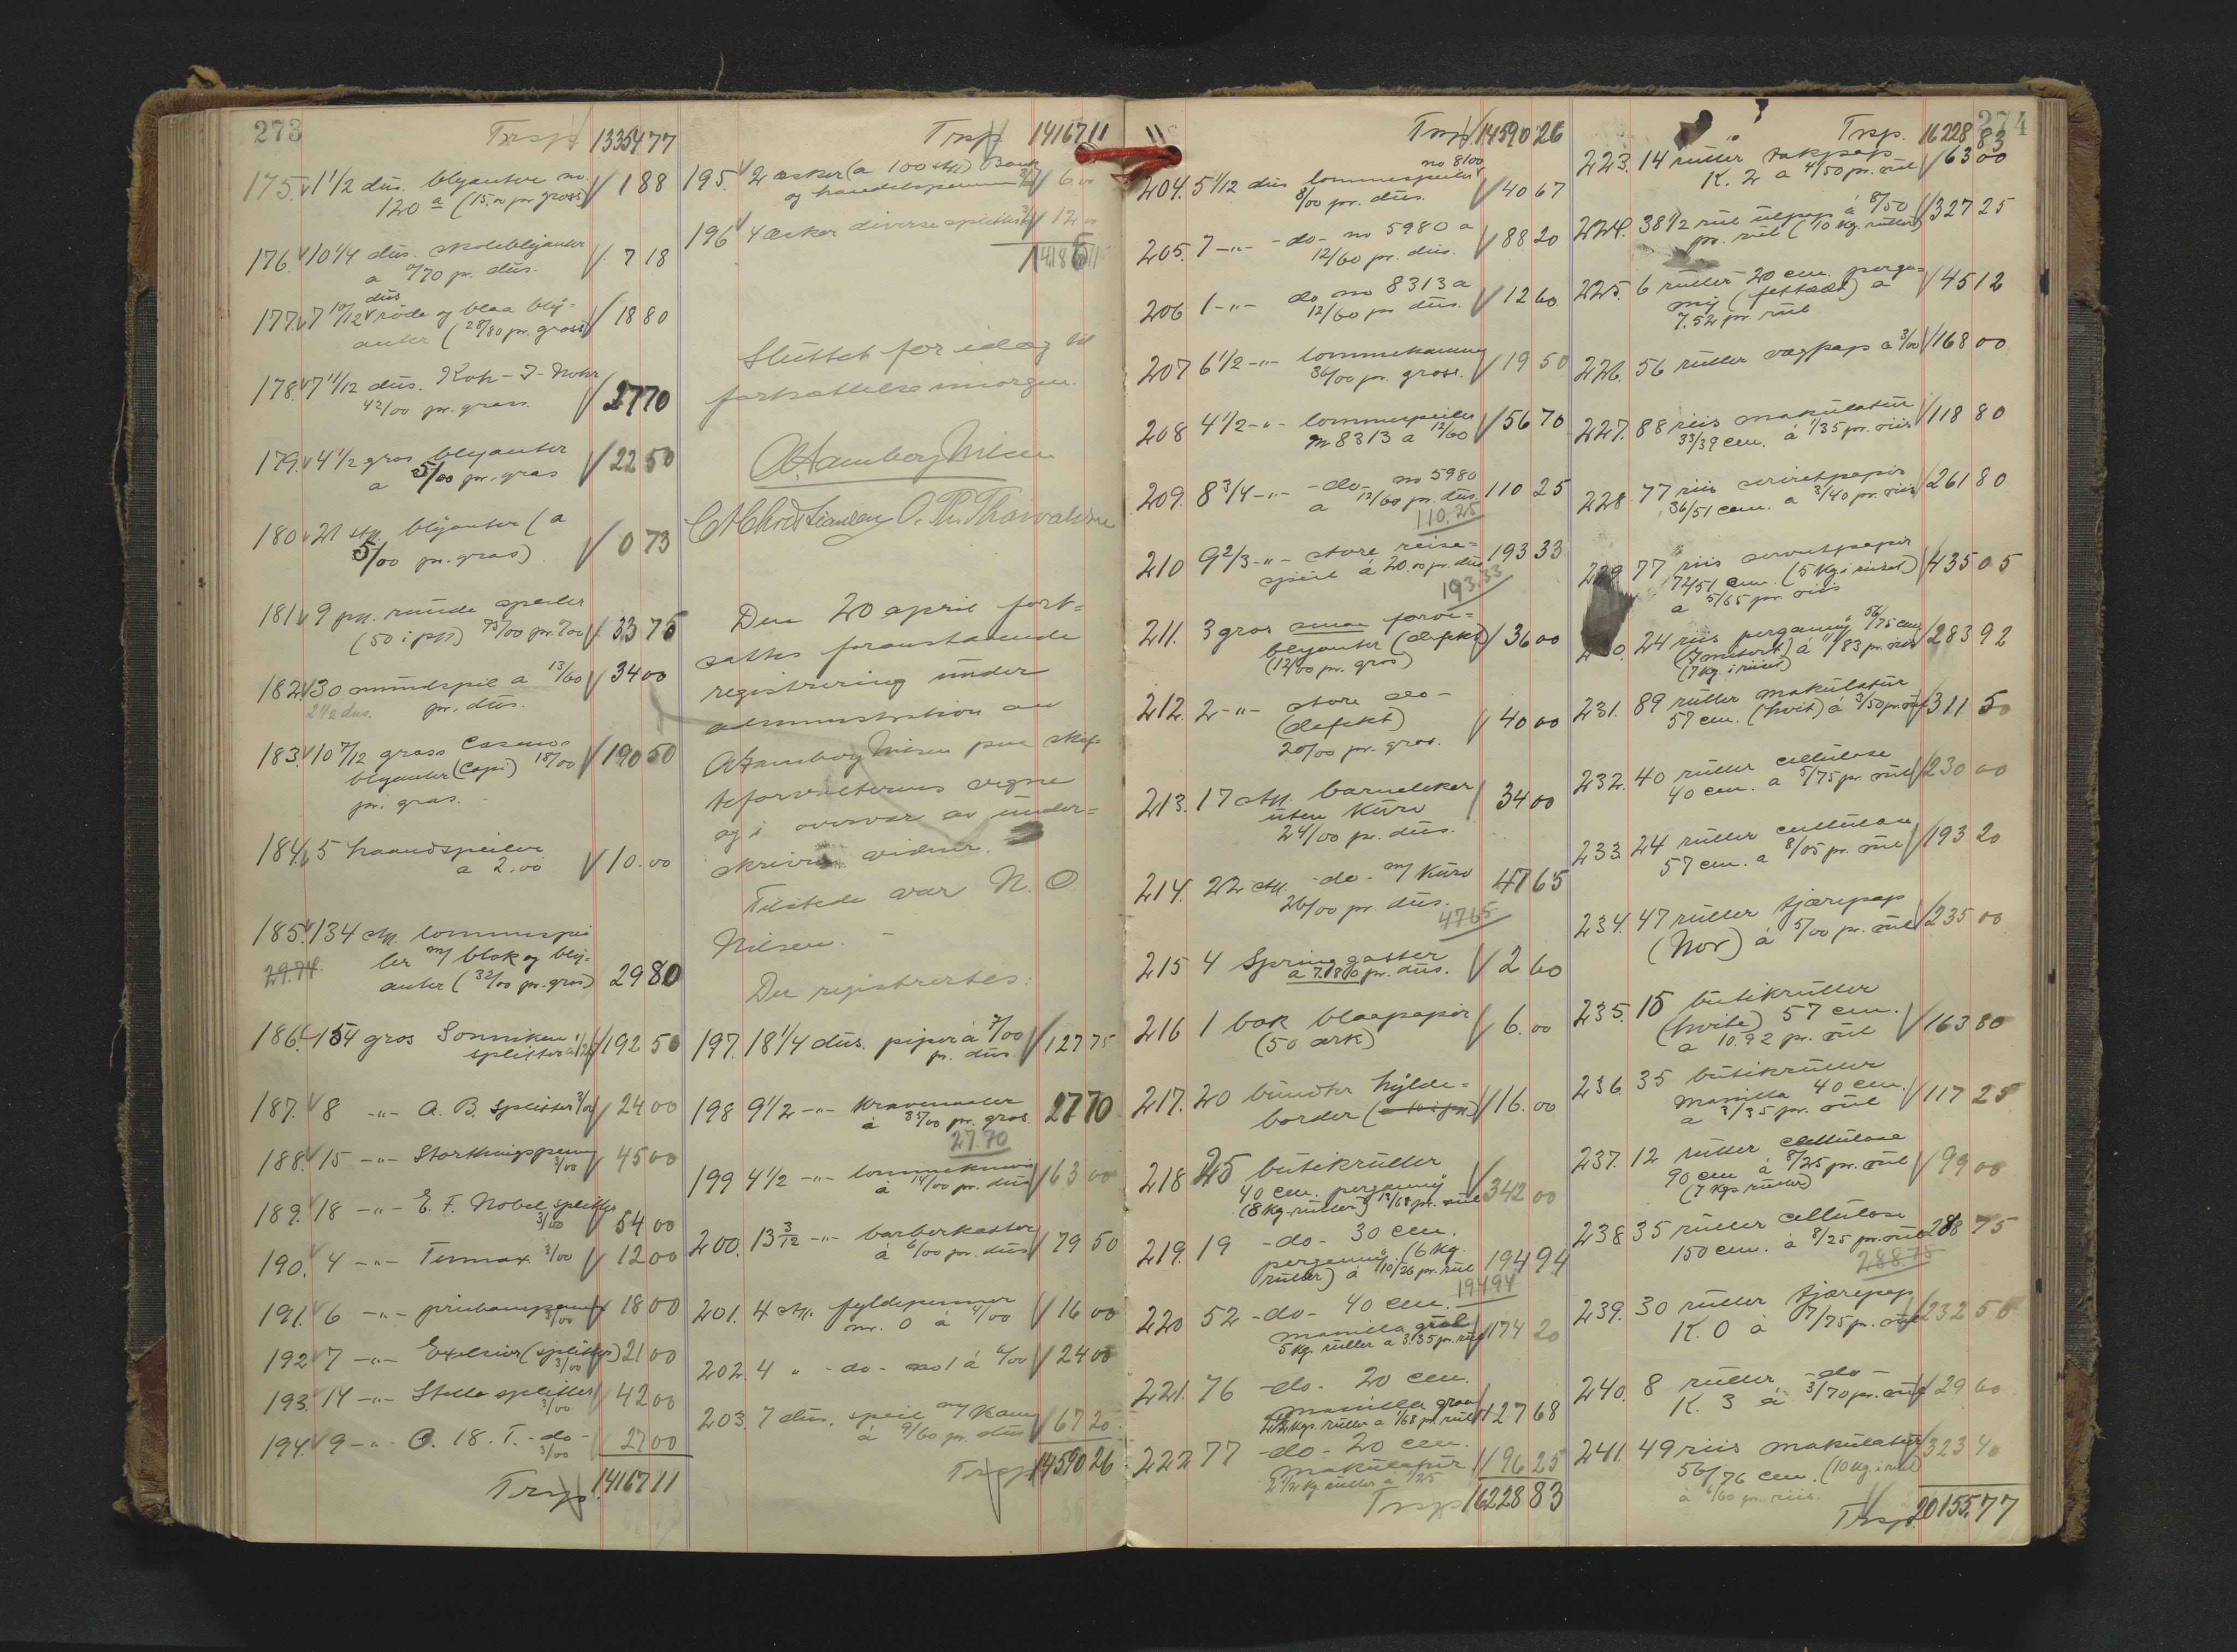 273
Trsp 13354 77
175. 1 1/2 düs. blyanter no.
120 a (15.00 pr gross) 1 88
176. 10 1/4 düs. skoleblyanter
a 0/70 pr. düs. 7 18
177. 7 10/12 düs röde og blaa bly-
anter (28/80 pr. gross) 18 80
178. 7 11/12 düs. Koh-I-Nohr
42/00 pr. gross. 27 70
179. 4 1/2 gros blyanter
a 5/00 pr. gros 22 50
180. 21 stk. blyanter (a
5/00 pr. gros) 0 73
181. 9 pk. runde speiler
(50 i pk) 75/00 pr. %00 33 75
182. 30 mundspil a 13/60
2 1/2 dus. pr. düs. 34 00
183. 10 7/12 gross Casino
blyanter (Copi) 18/00
pr. gros. 190 50
184. 5 haandspeiler
a 2.00 10.00
185. 134 stk. lommespei
29.74 ler m/ blok og bly-
anter (32/00 pr. gros) 29 80
186. 154 gros Sonniken
splitter a 1/25 192 50
187. 8 -"- A. B. Splitter 3/00 24 00
188. 15 -"- Storthingspenn 3/00 45 00
189. 18 -"- E. F. Nobel splitter
3/00 54 00
190. 4 -"- 3/00 12 00
191. 6 -"- 3/00 18 00
192 7 -"- Exelsior (splitter) 3/00 21 00
193. 14 -"- Stella splitter 3/00 42 00
194. 9 -"- O. 18. T. -do- 3/00 27 00
Trsp 14167 11
Trsp. 14167 11
195. 2 æsker (a 100 stk) Bank
og handelspenner 3/00 6 00
196 4 æsker diverse splitter 3/00 12 00
14185 11
Sluttet for idag til
fortsættelse imorgen.
A. Hamborg Nilsen
C. A. Christiansen O. Th. Thorvaldsen
Den 20 april fort-
sattes foranstaaende
registrering under
administration av
A. Hamborg Nilsen paa skif
teforvalterens vegne
og i overvær av under-
skrivne vidner.
Tilstede var N. O
Nilsen. -
Der registrertes:
197. 18 1/4 düs. piper à 7/00
pr. düs. 127 75
198 9 1/2 -"-
à 35/00 pr. gros 27 70
27.70
199 4 1/2 -"- lommekniver
à 14/00 pr. düs 63 00
200. 13 3/12 -"- barberkoster
à 6/00 pr. düs 79 50
201. 4 stk. fyldepenner
nr. 0 à 4/00 16 00
202. 4 " -do- no 1 á 6/00 24 00
203. 7 düs. speil m/ kam
à 9/60 pr. düs 67 20
Trsp 14590 26
Trsp 14590 26
no 8100
204. 5 1/12 düs lommespeiler
8/00 pr. düs. 40 67
205. 7 -"- -do- no 5980 a
12/60 pr. düs. 88 20
206 1 -"- do no 8313 a
12/60 pr düs. 12 60
207 6 1/2 -"- lommekamme
36/00 pr. gross. 19 50
208 4 1/2 -"- lommespeiler
no 8313 a 12/60 56 70
209. 8 3/4 -"- -do- no 5980
a 12/60 pr. düs. 110 25
110.25
210 9 2/3 -"- store reise-
speil á 20.00 pr. düs 193 33
193.33
211. 3 gros smaa farve-
blyanter (defekt)
(12/00 pr. gros) 36 00
212. 2 -"- store do-
(defekt)
20/00 pr. gros. 40 00
213. 17 stk. barneleker
uten Kurv
24/00 pr. düs. 34 00
214. 22 stk. -do- m/ Kurv
26/00 pr. düs. 47 65
47 65
215 4 Springgatter
a 7.80 pr. düs. 2 60
216 1 bok blaapapir
(50 ark) 6.00
217. 20 bundter hylde-
border (a 10 i pk) 16.00
218 25 butikruller
40 cm. pergamij
(8 kg. ruller) á 13/68 pr. rul 342 00
219. 19 -do- 30 cm.
pergamij. (6 kg.
ruller) á 10/26 pr. rul 194 94
194 94
220 52 -do- 40 cm.
manilla graa
5 kg. ruller a 3.35 pr. rul 174 20
221. 76 -do- 20 cm.
manilla graa
2 1/2 kgs. ruller a 1/68 pr. rul 127 68
222 77 -do- 20 cm.
makulatur
2 1/2 kg ruller á 1/25 96 25
Trsp 16228 83
274
Trsp. 16228 83
223. 14 ruller takpap
K. 2 a 4/50 pr. rul 63 00
224. 38 1/2 rul ulpap á 8/50
pr. rul (10 kg. ruller) 327 25
225. 6 ruller 20 cm. perga-
mij (fettæt) a
7.52 pr. rul 45 12
226. 56 ruller vægpap a 3/00 168 00
227. 88 riis makulatur
33/39 cm. á 1/35 pr. riis 118 80
228. 77 riis servietpapir
36/51 cm. a 3/40 pr. riis 261 80
229 77 riis servietpapir
72/51 cm. (5 kg. i riset)
a 5/65 pr. riis 435 05
24 riis pergamij 56/75 cm
á 11/83 pr. riis
(7 kg. i riset) 283 92
231. 89 ruller makulatur
57 cm. (hvit) á 3/50 pr. rul 311 50
232. 40 ruller cellulose
40 cm. a 5/75 pr. rul 230 00
233 24 ruller cellulose
57 cm. a 8/05 pr. rul 193 20
234. 47 ruller tjærepap
(Nor) á 5/00 pr. rul 235 00
235. 15 butikruller
(hvite) 57 cm.
a 10.92 pr. rul 163 80
236 35 butikruller
Manilla 40 cm.
a 3/35 pr. rul 117 25
237. 12 ruller cellulose
90 cm á 8/25 pr. rul
(7 kgs ruller) 99 00
238 35 ruller cellulose
150 cm. á 8/25 pr. rul 288 75
288.75
239. 30 ruller tjærepap
K. 0 à 7/75 pr. rul 232 50
240. 8 ruller -do-
K. 3 á 3/70 pr. rul 29 60
241. 49 riis makulatur
56/76 cm. (10 kg. i riset)
á 6/60 pr. riis. 323 40
Trsp. 20155.77